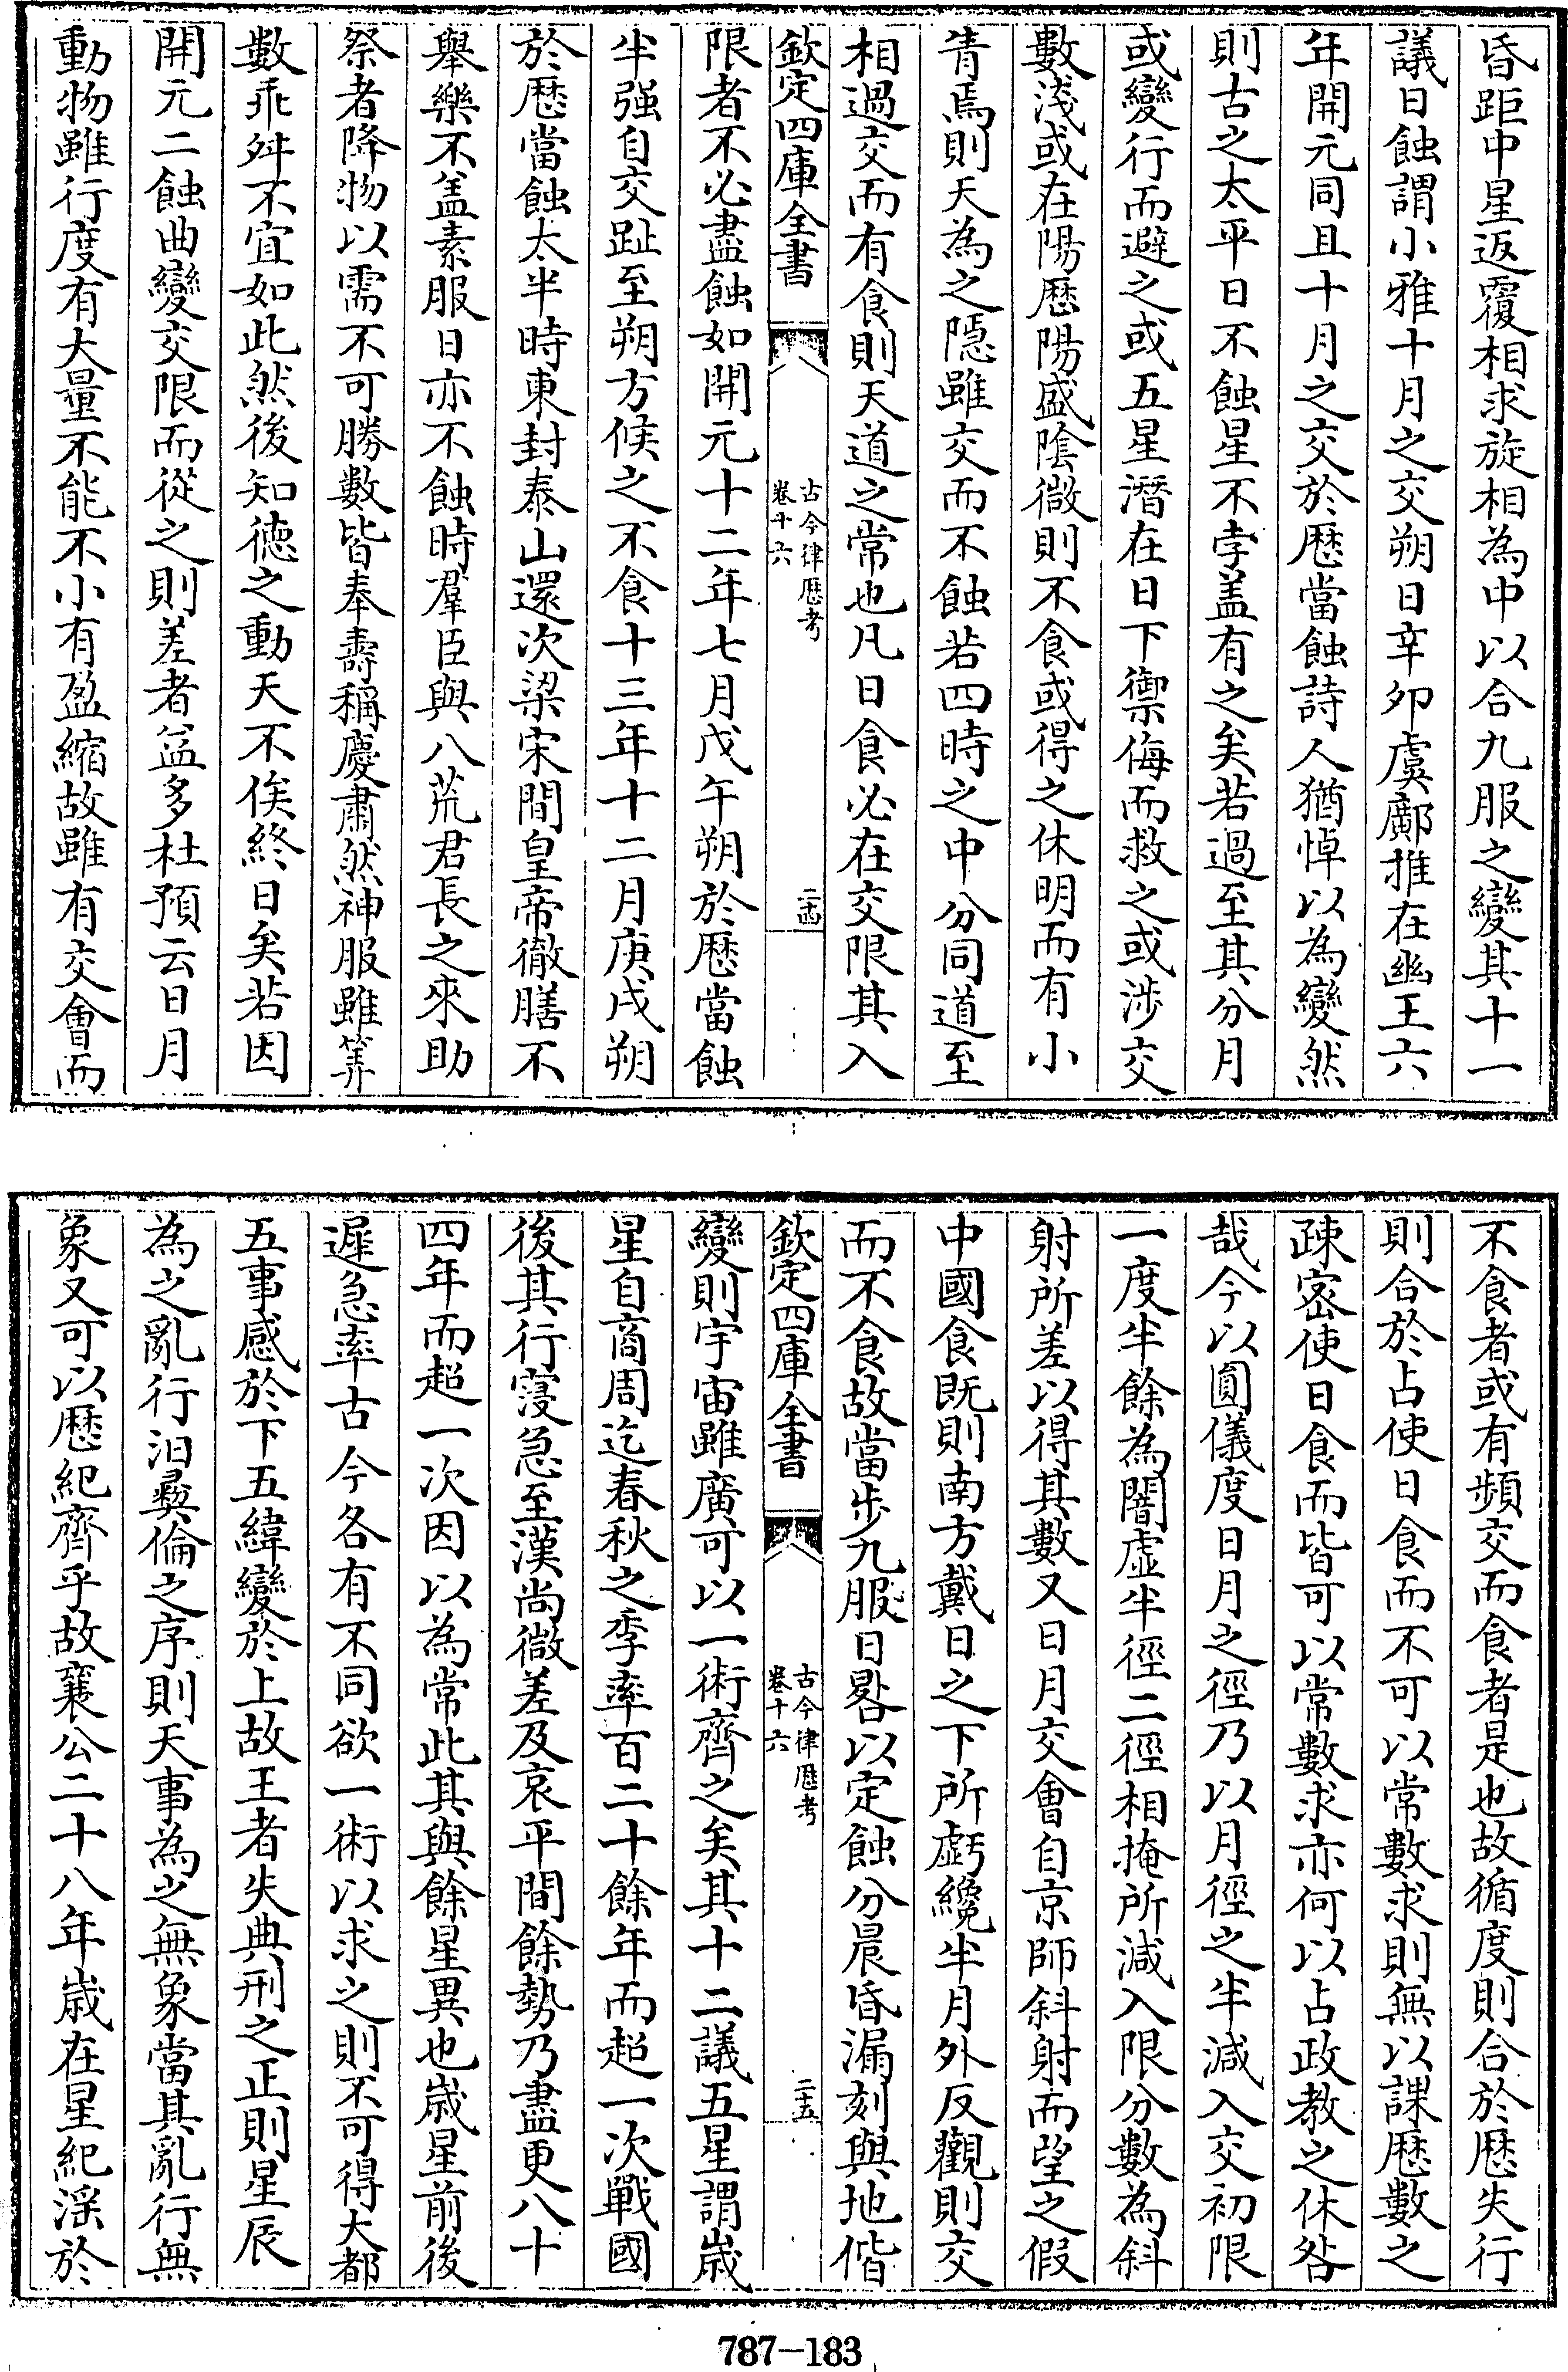 昏距中星返覆相求旋相為中以合九服之變其十一
議日蝕謂小雅十月之交朔日辛卯虞𠠎推在幽王六
年開元同且十月之交於厯當蝕詩人猶悼以為變然
則古之太平日不蝕星不孛盖有之矣若過至其分月
或變行而避之或五星潛在日下禦侮而救之或涉交
數淺或在陽厯陽盛隂微則不食或得之休明而有小
眚焉則天為之隱雖交而不蝕若四時之中分同道至
相過交而有食則天道之常也凡日食必在交限其入
欽定四庫全書
古今律厯考
卷十六
二十四
限者不必盡蝕如開元十二年七月戊午朔於厯當蝕
半强自交趾至朔方候之不食十三年十二月庚戌朔
於厯當蝕太半時東封泰山還次梁宋間皇帝徹膳不
舉樂不盖素服日亦不蝕時羣臣與八荒君長之來助
祭者降物以需不可勝數皆奉壽稱慶肅然神服雖筭
數乖舛不宜如此然後知徳之動天不俟終日矣若因
開元二蝕曲變交限而從之則差者益多杜預云日月
動物雖行度有大量不能不小有盈縮故雖有交會而
不食者或有頻交而食者是也故循度則合於厯失行
則合於占使日食而不可以常數求則無以課厯數之
疎宻使日食而皆可以常數求亦何以占政教之休咎
哉今以圓儀度日月之徑乃以月徑之半減入交初限
一度半餘為闇虛半徑二徑相掩所減入限分數為斜
射所差以得其數又日月交會自京師斜射而望之假
中國食既則南方戴日之下所虧纔半月外反觀則交
而不食故當步九服日晷以定蝕分晨昏漏刻與地偕
欽定四庫全書
古今律厯考
卷十六
二十五
變則宇宙雖廣可以一術齊之矣其十二議五星謂歲
星自商周迄春秋之季率百二十餘年而超一次戰國
後其行寖急至漢尚微差及哀平間餘勢乃盡更八十
四年而超一次因以為常此其與餘星異也歲星前後
遲急率古今各有不同欲一術以求之則不可得大都
五事感於下五緯變於上故王者失典刑之正則星辰
為之亂行汨彞倫之序則天事為之無象當其亂行無
象又可以厯紀齊乎故襄公二十八年歲在星紀淫於
787-183